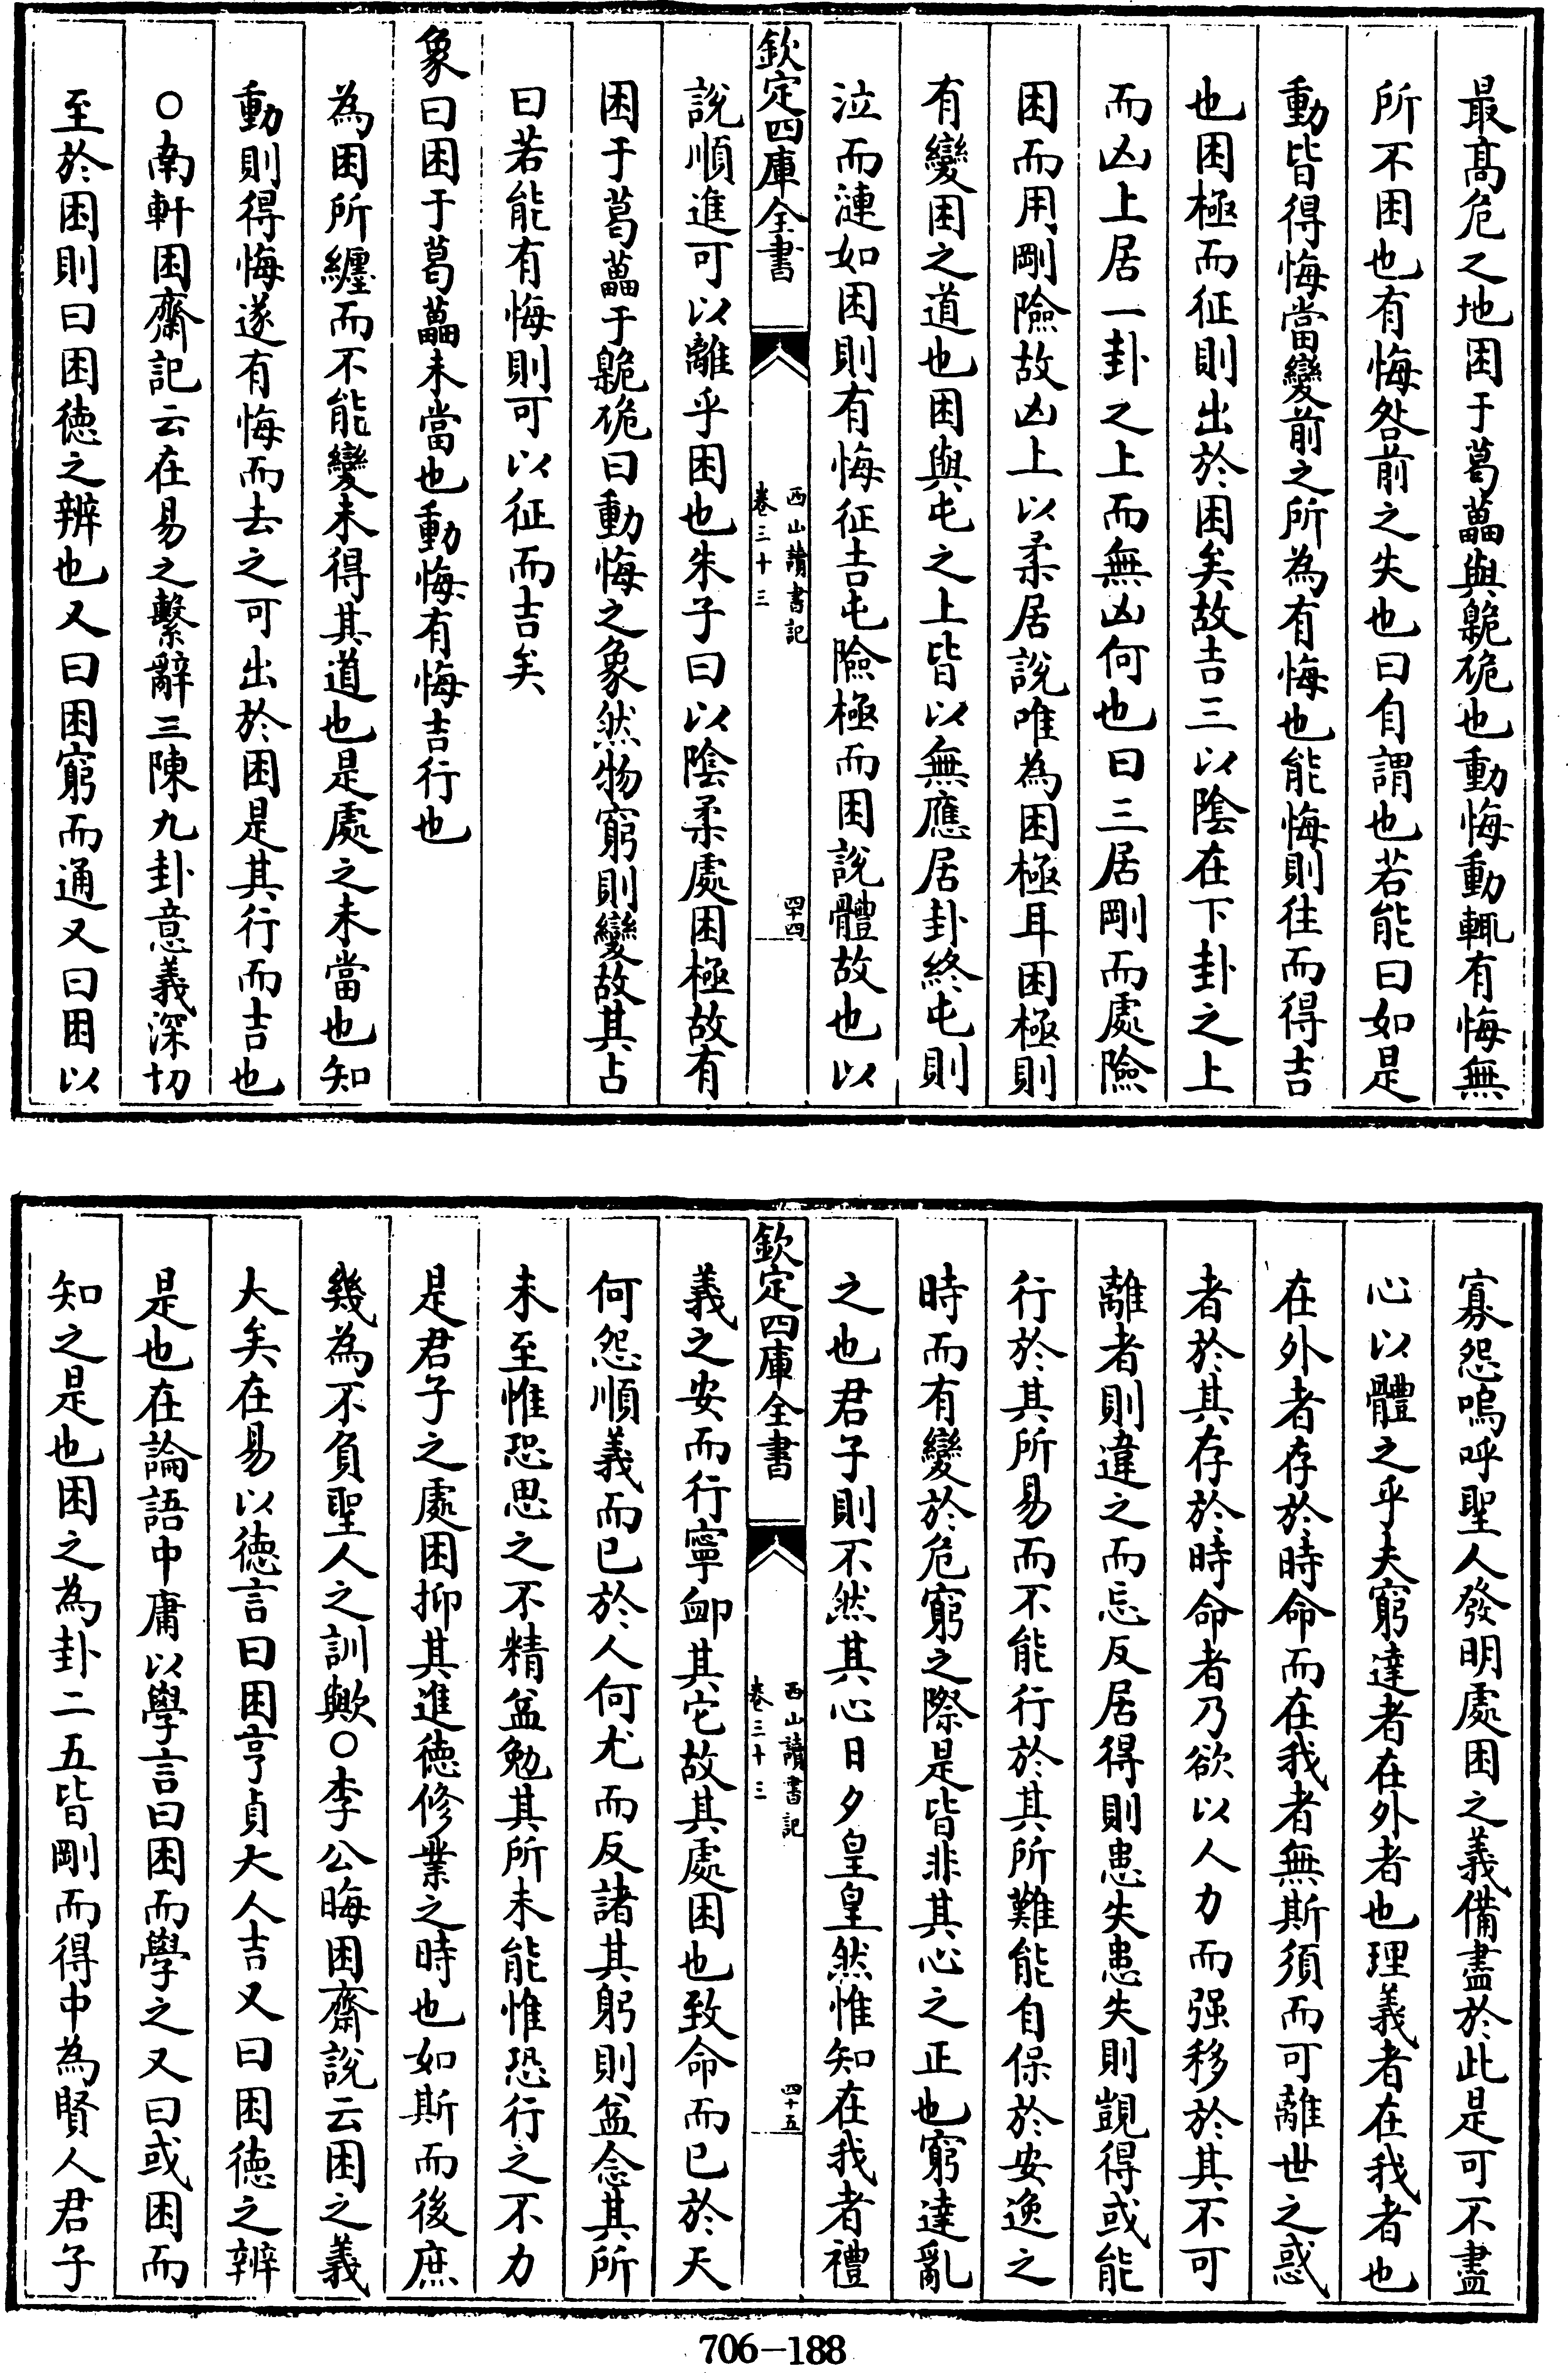 最髙危之地困于葛藟與臲卼也動悔動輒有悔無
所不困也有悔咎前之失也曰自謂也若能曰如是
動皆得悔當變前之所為有悔也能悔則往而得吉
也困極而征則出於困矣故吉三以陰在下卦之上
而凶上居一卦之上而無凶何也曰三居剛而處險
困而用剛險故凶上以柔居說唯為困極耳困極則
有變困之道也困與屯之上皆以無應居卦終屯則
泣而漣如困則有悔征吉屯險極而困說體故也以
欽定四庫全書
西山讀書記
卷三十三
四十四
說順進可以離乎困也朱子曰以陰柔處困極故有
困于葛藟于臲卼曰動悔之象然物窮則變故其占
曰若能有悔則可以征而吉矣
象曰困于葛藟未當也動悔有悔吉行也
為困所纏而不能變未得其道也是處之未當也知
動則得悔遂有悔而去之可出於困是其行而吉也
○南軒困齋記云在易之繫辭三陳九卦意義深切
至於困則曰困徳之辨也又曰困窮而通又曰困以
寡怨嗚呼聖人發明處困之義備盡於此是可不盡
心以體之乎夫窮達者在外者也理義者在我者也
在外者存於時命而在我者無斯須而可離世之惑
者於其存於時命者乃欲以人力而强移於其不可
離者則違之而忘反居得則患失患失則覬得或能
行於其所易而不能行於其所難能自保於安逸之
時而有變於危窮之際是皆非其心之正也窮達亂
之也君子則不然其心日夕皇皇然惟知在我者禮
欽定四庫全書
西山讀書記
卷三十三
四十五
義之安而行寧䘏其它故其處困也致命而已於天
何怨順義而已於人何尤而反諸其躬則益念其所
未至惟恐思之不精益勉其所未能惟恐行之不力
是君子之處困抑其進徳修業之時也如斯而後庶
幾為不負聖人之訓歟○李公晦困齋說云困之義
大矣在易以徳言曰困亨貞大人吉又曰困徳之辨
是也在論語中庸以學言曰困而學之又曰或困而
知之是也困之為卦二五皆剛而得中為賢人君子
706-188